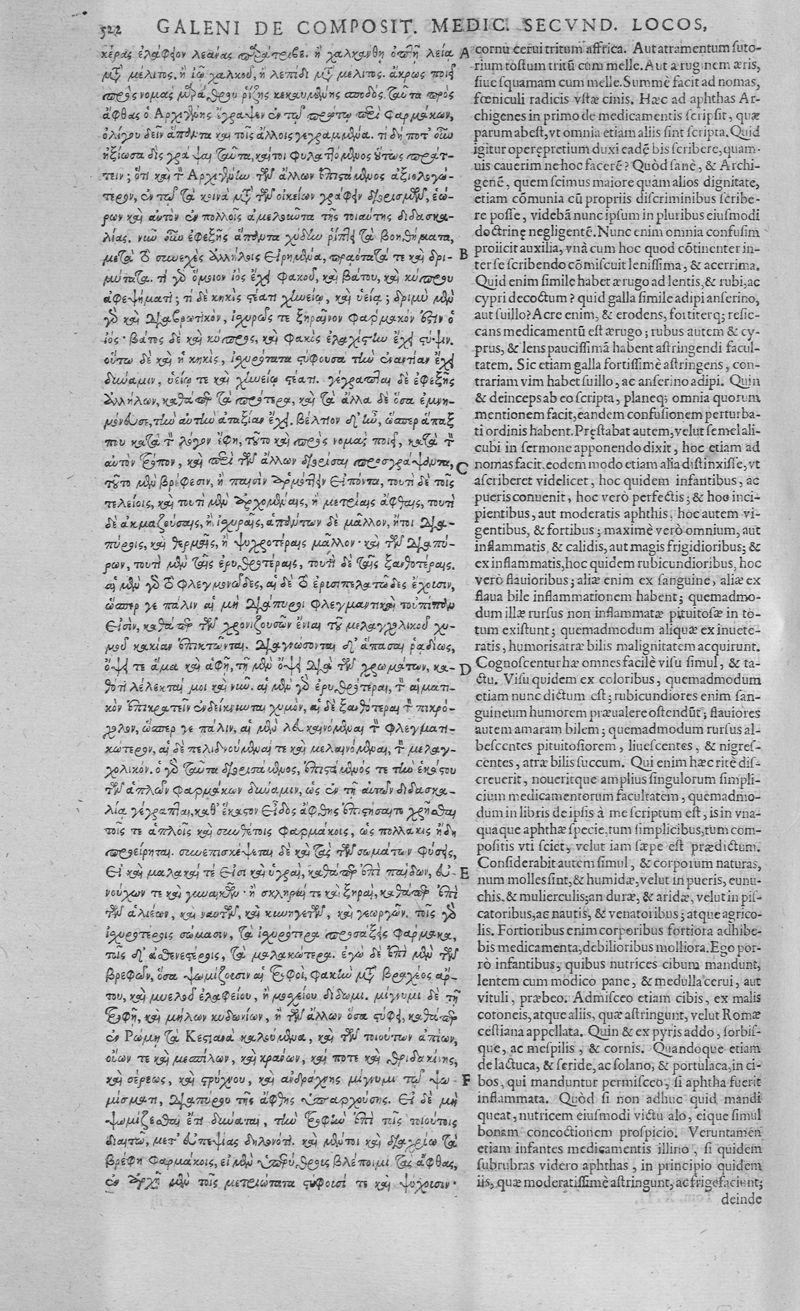 522 GALENI DE COMPOSIT. MEDIC. SECVND. LOCOS,
κέρας ἐλάφειον λεάνας παράτριβε. ἢ χαλκάνθη ὀπτῇ λεία
μετὰ μέλιτος. ἢ ἰῷ χαλκοῦ, ἢ λεπίδι μετὰ μέλιτος. ἄκρως ποιεῖ
πρὸς νομὰς μαράθρου ῥίζης κεκαυμένης σποδός. ταῦτα πρὸς
ἄφθας ὁ Ἀρχιγένης ἔγραψεν ἐν τῷ πρώτῳ περὶ φαρμάκων,
ὀλίγου δεῖν ἅπαντα καὶ τοῖς ἄλλοις γεγραμμένα. τί δή ποτ' οὖν
ἠξίωσα δὶς γράψαι ταῦτα, καίτοι φυλαττόμενος οὕτως πράτ-
τειν; ὅτι καὶ τὸν Ἀρχιγένην τῶν ἄλλων ἐπιστάμενος ἀξιολογώ-
τερον, ἐν τῷ τὰ κοινὰ μετὰ τῶν οἰκείων γράφειν διορισμῶν, ἑώ-
ρων καὶ αὐτὸν ἐν πολλοῖς ἀμελοῦντα τῆς τοιαύτης διδασκα-
λίας. νῦν οὖν ἐφεξῆς ἅπαντα χύδην ῥίπτει τὰ βοηθήματα,
μετὰ τοῦ συνεχὲς ἀλλήλοις εἰρημένα, πραότατά τε καὶ δρι-
μύτατα. τί γὰρ ὅμοιον ἰὸς ἔχει φακοῦ, καὶ βάτου, καὶ κύπρου
ἀφεψήματι; τί δὲ κηκὶς στέατι χηνείῳ, καὶ ὑείῳ; δριμὺ μὲν
γὰρ καὶ διαβρωτικὸν, ἰσχυρῶς τε ξηραῖνον φάρμακόν ἐστιν ὁ
ἰός· βάτος δὲ καὶ κύπρος, καὶ φακὸς ἐλαχίστην ἔχει στύψιν.
οὕτω δὲ καὶ ἡ κηκὶς, ἰσχυρότατα στύφουσα τὴν ἐναντίαν ἔχει
δύναμιν, ὑείῳ τε καὶ χηνείῳ στέατι. γέγραπται δὲ ἐφεξῆς
ἀλλήλων, καθάπερ τὰ πρότερα, καὶ τὰ ἄλλα δὲ ὅσα ἐμνη-
μόνευσε, τὴν αὐτὴν ἀταξίαν ἔχει. βέλτιον δ' ἦν, ὥσπερ ἅπαξ
που κατὰ τὸν λόγον ἔφη, τοῦτο καὶ πρὸς νομὰς ποιεῖ, κατὰ τὸν
αὐτὸν τρόπον, καὶ περὶ τῶν ἄλλων διορίσαι προσγράψαντα,
τοῦτο μὲν βρέφεσιν, ἢ παισὶν ἁρμόττειν εἰπόντα, τουτὶ δὲ τοῖς
τελείοις, καὶ τουτὶ μὲν ἀρχομέναις, ἢ μετρίαις ἄφθαις, τουτὶ
δὲ ἀκμαζούσαις, ἢ ἰσχυραῖς, ἁπάντων δὲ μᾶλλον, ἤτοι δια-
πύροις, καὶ θερμαῖς, ἢ ψυχροτέραις μᾶλλον· καὶ τῶν διαπύ-
ρων, τουτὶ μὲν ταῖς ἐρυθροτέραις, τουτὶ δὲ ταῖς ξανθοτέραις.
αἱ μὲν γὰρ τὸ φλεγμονῶδες, αἱ δὲ τὸ ἐρυσιπελατῶδες ἔχουσιν,
ὥσπερ γε πάλιν αἱ μὴ διάπυροι φλεγματικαὶ τοὐπίπαν
εἰσὶν, καθάπερ τῶν χρονιζουσῶν ἔνιαι τοῦ μελαγχολικοῦ χυ-
μοῦ κακίαν ἐπικτῶνται. διαγνώσονται δ' ἅπασαι ῥᾳδίως,
ὄψει τε ἅμα καὶ ἁφῇ, τῇ μὲν ὄψει διὰ τῶν χρωμάτων, κα-
θότι λέλεκταί μοι καὶ νῦν. αἱ μὲν γὰρ ἐρυθρότεραι, τὸν αἱματι-
κὸν ἐπικρατεῖν ἐνδείκνυνται χυμὸν, αἱ δὲ ξανθότεραι τὸν πικρό-
χολον, ὥσπερ γε πάλιν, αἱ μὲν λευκαινόμεναι τὸν φλεγματι-
κώτερον, αἱ δὲ πελιδνούμεναί τε καὶ μελαινόμεναι, τὸν μελαγ-
χολικόν. ὁ γὰρ ταῦτα διορισάμενος, ἐπιστάμενός τε τὴν ἑκάστου
τῶν ἁπλῶν φαρμάκων δύναμιν, ὡς ἐν τῇ αὐτῶν διδασκα-
λίᾳ γέγραπται, καθ' ἕκαστον εἶδος ἄφθης ἐπιστήσεται χρῆσθαι
τοῖς τε ἁπλοῖς καὶ συνθέτοις φαρμάκοις, ὡς πολλάκις ἤδη
προείρηται. συνεπισκέψεται δὲ καὶ τὰς τῶν σωμάτων φύσεις,
εἰ καὶ μαλακαί τε εἰσὶ καὶ ὑγραὶ, καθάπερ ἐπὶ παίδων, εὐ-
νούχων τε καὶ γυναικῶν· ἢ σκληραί τε καὶ ξηραὶ, καθάπερ ἐπὶ
τῶν ἁλιέων, καὶ ναυτῶν, καὶ κυνηγετῶν, καὶ γεωργῶν. τοῖς γὰρ
ἰσχυροτέροις σώμασιν, τὰ ἰσχυρότερα προσάξεις φάρμακα,
τοῖς δ' ἀσθενεστέροις, τὰ μαλακώτερα. ἐγὼ δὲ ἐπὶ μὲν τῶν
βρεφῶν, ὅσα ψωμίζουσιν αἱ τροφοὶ, φακῆν μετὰ βραχέος ἄρ-
του, καὶ μυελοῦ ἐλαφείου, ἢ μοσχείου δίδωμι. μίγνυμι δὲ τῇ
τροφῇ, καὶ μήλων κυδωνίων, ἢ τῶν ἄλλων ὅσα στύφει, καθάπερ
ἐν Ῥώμῃ τὰ Κεστιανὰ καλούμενα, καὶ τῶν τοιούτων ἀπίων,
οὔων τε καὶ μεσπίλων, καὶ κράνων, καὶ ποτὲ καὶ θριδακίνης,
καὶ σέρεως, καὶ στρύχνου, καὶ ἀνδράχνης μίγνυμι τῷ ψω-
μίσματι, διαπύρου τῆς ἄφθης ὑπαρχούσης. εἰ δὲ μὴ
ψωμίζεσθαι ἔτι δύναται, τὴν τροφὸν ἐπὶ τοῖς τοιούτοις
διαιτῶ, μετ' εὐπεψίας δηλονότι. καὶ μέντοι καὶ διαχρίω τὰ
βρέφη φαρμάκοις, εἰ μὲν ὑπερύθρους βλέποιμι τὰς ἄφθας,
ἐν ἀρχῇ μὲν τοῖς μετριώτατα στύφουσί τε καὶ ψύχουσιν·
A
B
C
D
E
F
cornu cerui tritum affrica. Aut atramentum suto-
rium tostum tritū cum melle. Aut æruginem æris,
siue squamam cum melle. Summè facit ad nomas,
fœniculi radicis vstæ cinis. Hæc ad aphthas Ar-
chigenes in primo de medicamentis scripsit, quæ
parum abest, vt omnia etiam aliis sint scripta. Quid
igitur operępretium duxi eadē bis scribere, quam-
uis cauerim ne hoc facerē? Quòd sanè, & Archi-
genē, quem scimus maiore quàm alios dignitate,
etiam cōmunia cū propriis discriminibus scribe-
re posse, videbā nunc ipsum in pluribus eiusmodi
doctrinę negligentē. Nunc enim omnia confusim
proiicit auxilia, vnà cum hoc quod cōtinenter in-
ter se scribendo cōmiscuit lenissima, & acerrima.
Quid enim simile habet ærugo ad lentis, & rubi, ac
cypri decoctum? quid galla simile adipi anserino,
aut suillo? Acre enim, & erodens, fortiterq; resic-
cans medicamentū est ærugo; rubus autem & cy-
prus, & lens paucissimā habent astringendi facul-
tatem. Sic etiam galla fortissimè astringens, con-
trariam vim habet suillo, ac anserino adipi. Quin
& deinceps ab eo scripta, planeq; omnia quorum
mentionem facit, eandem confusionem perturba-
ti ordinis habent. Pręstabat autem, velut semel ali-
cubi in sermone apponendo dixit, hoc etiam ad
nomas facit. eodem modo etiam alia distinxisse, vt
ascriberet videlicet, hoc quidem infantibus, ac
pueris conuenit, hoc verò perfectis; & hoc inci-
pientibus, aut moderatis aphthis, hoc autem vi-
gentibus, & fortibus; maximè verò omnium, aut
inflammatis, & calidis, aut magis frigidioribus; &
ex inflammatis, hoc quidem rubicundioribus, hoc
verò flauioribus; aliæ enim ex sanguine, aliæ ex
flaua bile inflammationem habent; quemadmo-
dum illæ rursus non inflammatæ pituitosæ in to-
tum existunt; quemadmodum aliquæ ex inuete-
ratis, humoris atræ bilis malignitatem acquirunt.
Cognoscentur hæ omnes facilè visu simul, & ta-
ctu. Visu quidem ex coloribus, quemadmodum
etiam nunc dictum est; rubicundiores enim san-
guineum humorem præualere ostendūt; flauiores
autem amaram bilem; quemadmodum rursus al-
bescentes pituitosiorem, liuescentes, & nigres-
centes, atræ bilis succum. Qui enim hæc ritè dis-
creuerit, noueritque amplius singulorum simpli-
cium medicamentorum facultatem, quemadmo-
dum in libris de ipsis à me scriptum est, is in vna-
quaque aphthæ specie, tum simplicibus, tum com-
positis vti sciet, velut iam sæpe est prædictum.
Considerabit autem simul, & corporum naturas,
num molles sint, & humidæ, velut in pueris, eunu-
chis, & mulierculis; an duræ, & aridæ, velut in pis-
catoribus, ac nautis, & venatoribus; atque agrico-
lis. Fortioribus enim corporibus fortiora adhibe-
bis medicamenta, debilioribus molliora. Ego por-
rò infantibus, quibus nutrices cibum mandunt,
lentem cum modico pane, & medulla cerui, aut
vituli, præbeo. Admisceo etiam cibis, ex malis
cotoneis, atque aliis, quæ astringunt, velut Romæ
cestiana appellata. Quin & ex pyris addo, sorbis-
que, ac mespilis, & cornis. Quandoque etiam
de lactuca, & seride, ac solano, & portulaca, in ci-
bos, qui manduntur permisceo, si aphtha fuerit
inflammata. Quòd si non adhuc quid mandi
queat, nutricem eiusmodi victu alo, eique simul
bonam concoctionem prospicio. Veruntamen
etiam infantes medicamentis illino, si quidem
subrubras videro aphthas, in principio quidem
iis, quæ moderatissimè astringunt, ac frigefacient;
deinde